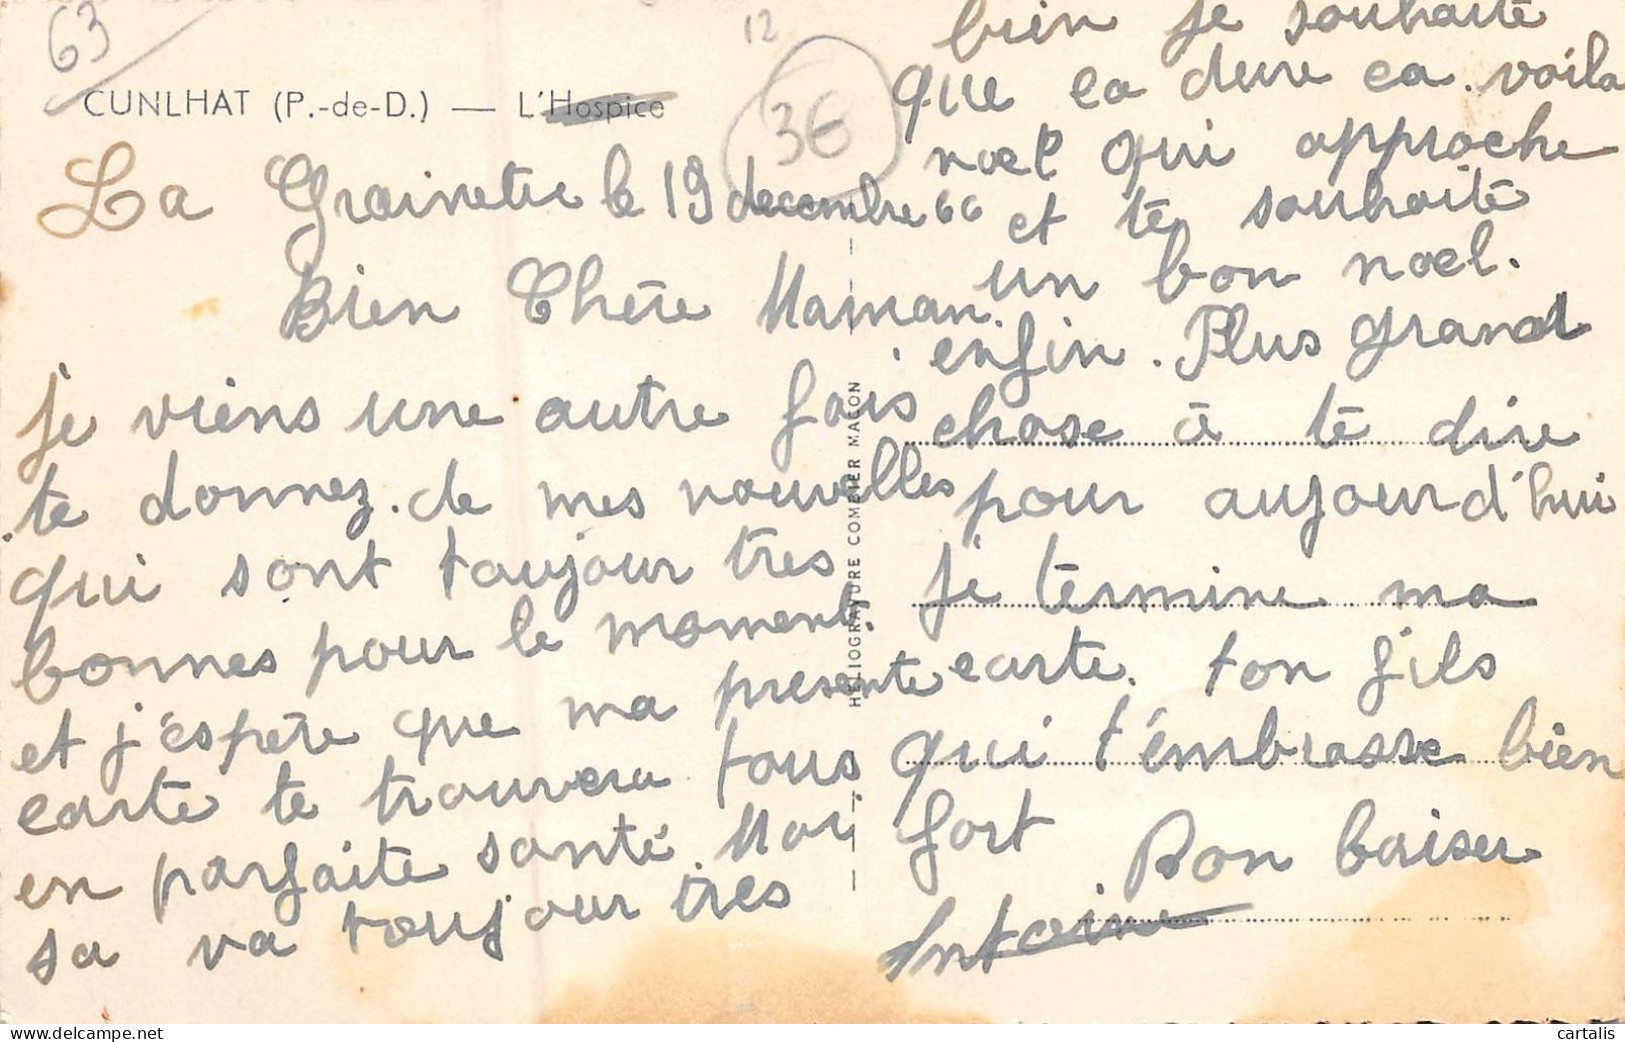 63
12
3€
CUNLHAT (P.-de-D.) — L'Hospice
La Grainetie le 19 decembre 66
Bien Chère Maman.
je viens une autre fois
te donnez. de mes nouvelles
qui sont toujour tres
bonnes pour le moment.
et j'éspère que ma presente
carte te trouvera tous
en parfaite santé. Moi
sa va toujour tres
bien je souhaite
que ca dure ca. voila
noel qui approche
et te souhaite
un bon noel.
enfin. Plus grand
chose à te dire
pour aujourd'hui
je termine ma
carte. ton fils
qui t'émbrasse bien
fort Bon baiser
Antoine
HELIOGRAVURE COMBIER MACON
cartalis